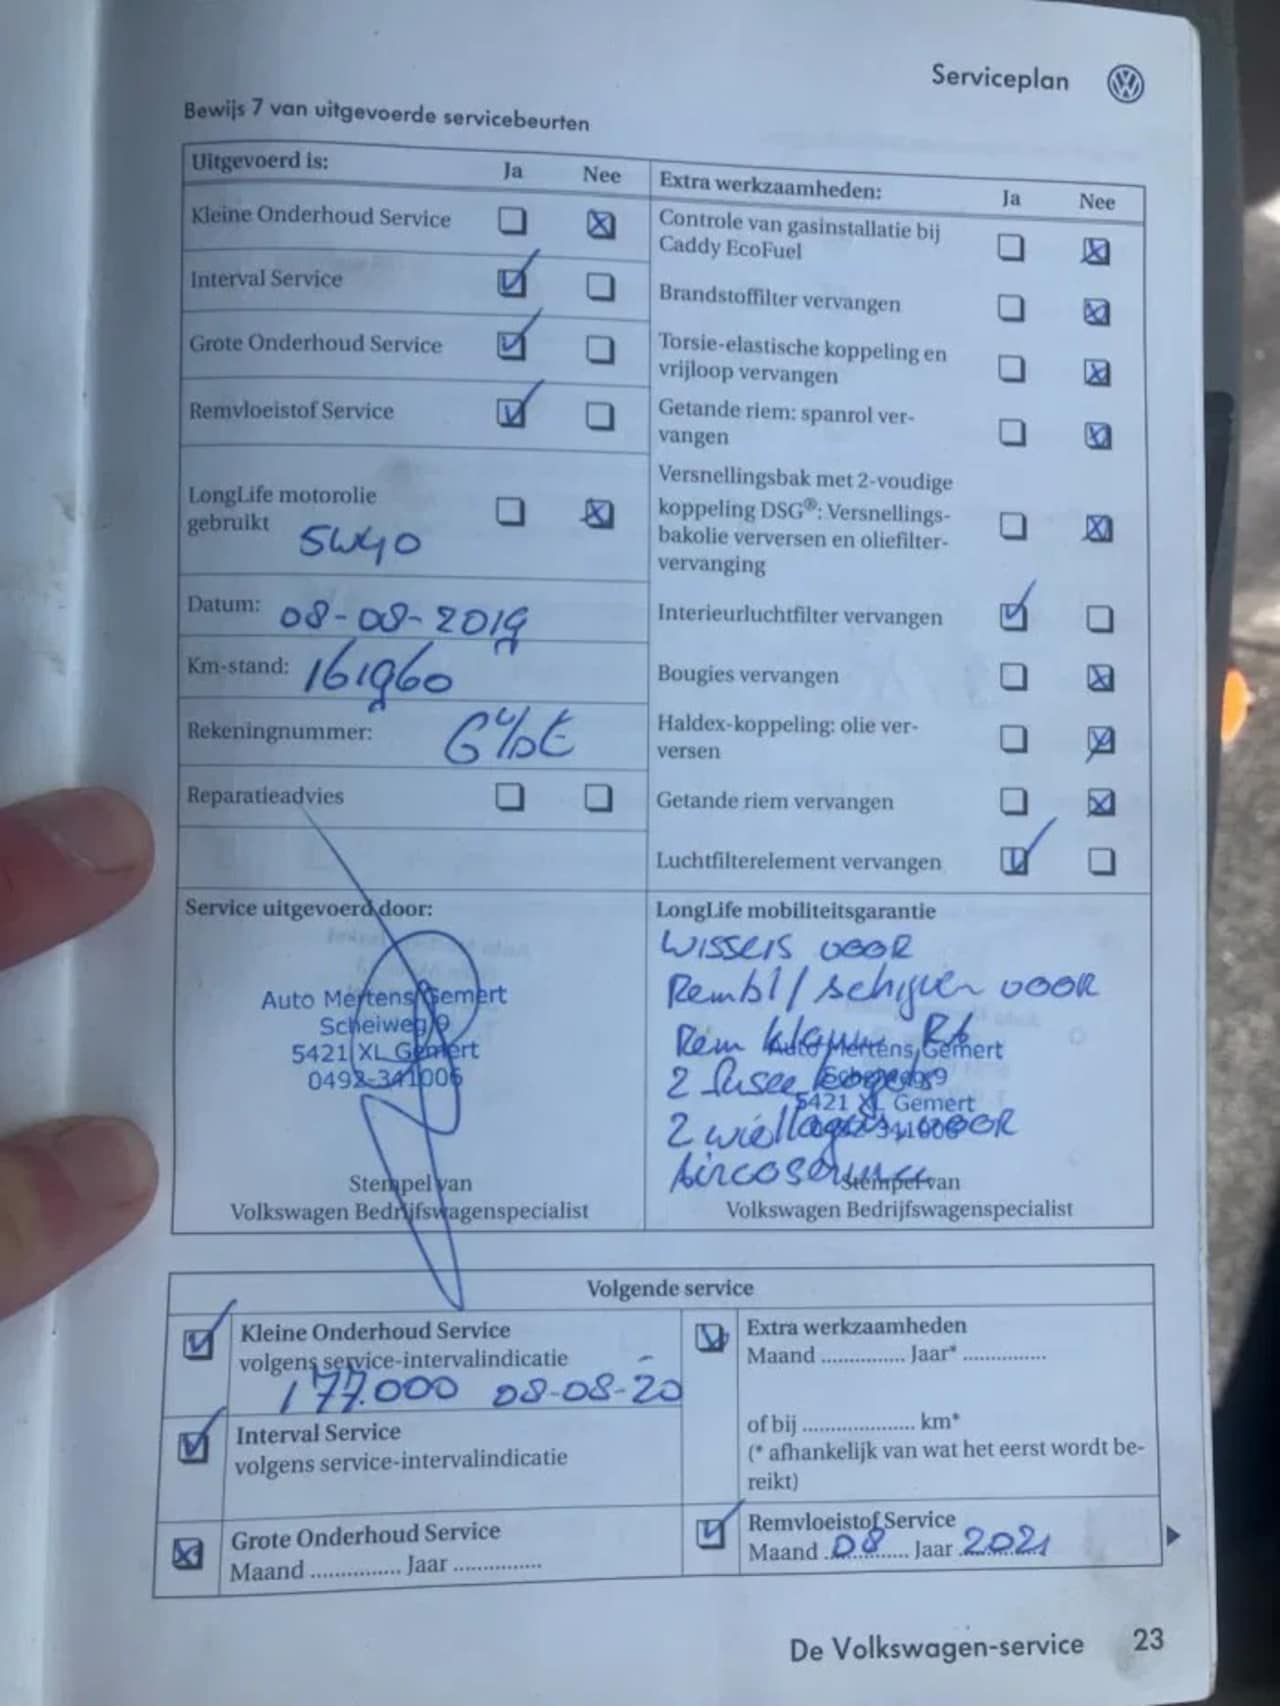 Serviceplan
Bewijs 7 van uitgevoerde servicebeurten
Uitgevoerd is: Ja Nee
Kleine Onderhoud Service
Interval Service
Grote Onderhoud Service
Remvloeistof Service
LongLife motorolie
gebruikt 5W40
Datum: 08-08-2019
Km-stand: 161960
Rekeningnummer:
Reparatieadvies
Extra werkzaamheden: Ja Nee
Controle van gasinstallatie bij
Caddy EcoFuel
Brandstoffilter vervangen
Torsie-elastische koppeling en
vrijloop vervangen
Getande riem: spanrol ver-
vangen
Versnellingsbak met 2-voudige
koppeling DSG®: Versnellings-
bakolie verversen en oliefilter-
vervanging
Interieurluchtfilter vervangen
Bougies vervangen
Haldex-koppeling: olie ver-
versen
Getande riem vervangen
Luchtfilterelement vervangen
Service uitgevoerd door:
Auto Mertens Gemert
Scheiweg 9
5421 XL Gemert
0492-341006
Stempel van
Volkswagen Bedrijfswagenspecialist
LongLife mobiliteitsgarantie
WISSERS VOOR
Rembl / schijven VOOR
Rem klauw RA
Auto Mertens Gemert
2 fusee kogels
Scheiweg 9
5421 XL Gemert
2 wiellagers VOOR
341006
Aircoservice
Stempel van
Volkswagen Bedrijfswagenspecialist
Volgende service
Kleine Onderhoud Service
volgens service-intervalindicatie
177.000 08-08-20
Interval Service
volgens service-intervalindicatie
Grote Onderhoud Service
Maand ............... Jaar ...............
Extra werkzaamheden
Maand ............... Jaar* ...............
of bij .................... km*
(* afhankelijk van wat het eerst wordt be-
reikt)
Remvloeistof Service
Maand 08 Jaar 2021
De Volkswagen-service 23